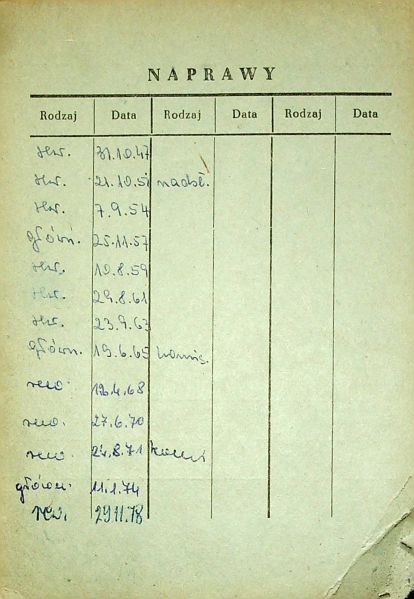 NAPRAWY
Rodzaj Data Rodzaj Data Rodzaj Data
rew. 31.10.47
rew. 21.10.51 nadsł.
rew. 7.9.54
główn. 25.11.57
rew. 10.8.59
rew. 29.8.61
rew. 23.9.63
główn. 19.6.65
rew. 12.4.68
rew. 27.6.70
rew. 24.8.71
główn. 11.1.74
rew. 29.11.78